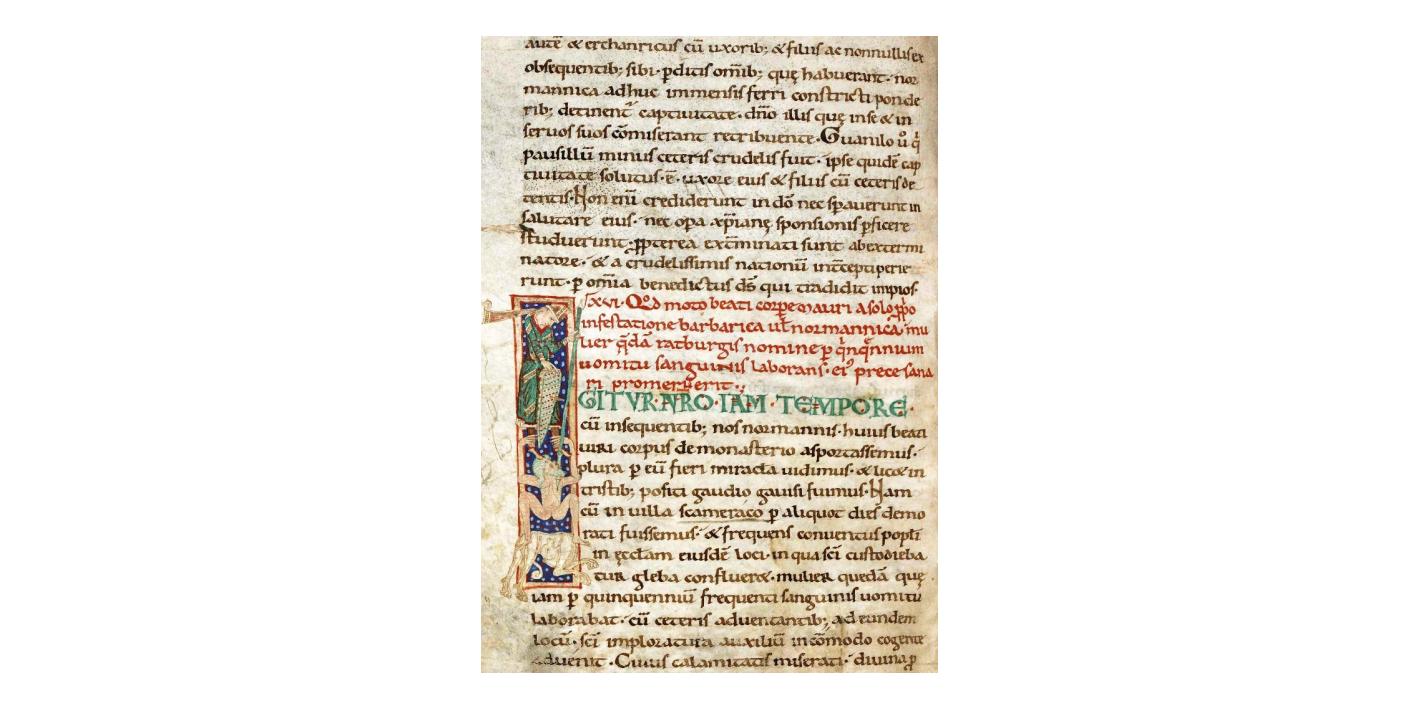 autē & erchanricus cū uxorib; & filiis ac nonnullis ex
obsequentib; sibi· ꝑditis om̄ib; quę habuerant· nor
mannica adhuc immensis ferri constricti ponde
rib; detinent᷑ captiuitate· dn̄o illis quę in se & in
seruos suos cōmiserant retribuente· Guanilo u͛o q͛
pausillū minus ceteris crudelis fuit· ipse quidē cap
tiuitate solutus· ē· uxore eius & filiis cū ceteris de
tentis· Non eni͞ crediderunt in dō nec sꝑauerunt in
salutare eius· nec oꝑa xp̄ianę sponsionis ꝑficere
studuerunt· ꝓpterea ext͛minati sunt ab extermi
natore· & a crudelissimis nationū int͛cepti perie
runt· ꝑ om̄ia benedictus ds̄ qui tradidit impios·
xvi· Qđ moto beati corꝑe mauri a solo ꝓprio
infestatione barbarica ul̄ normannica· mu
lier q̄dā ratburgis nomine ꝑ q͛nq̄nnium
uomitu sanguinis laborans· ei᷒ prece sana
ri promeruerit·
IGITUR NRO· IAM· TEMPORE·
cū insequentib; nos normannis· huius beati
uiri corpus de monasterio asportassemus·
plura ꝑ eū fieri miracla uidimus· & lic& in
tristib; positi gaudio gauisi fuimus· Nam
cū in uilla scameraco ꝑ aliquot dies demo
rati fuissemus· & frequens conuentus popłi
in ęcclam eiusdē loci· in qua sc͞i custodieba
tur gleba confluer&· mulier quedā quę
iam ꝑ quinquenniū frequenti sanguinis uomitu
laborabat· cū ceteris aduentantib; ad eundem
locū· sc͞i imploratura auxiliū incōmodo cogente
aduenit· Cuius calamitatis miserati· diuina ꝓ